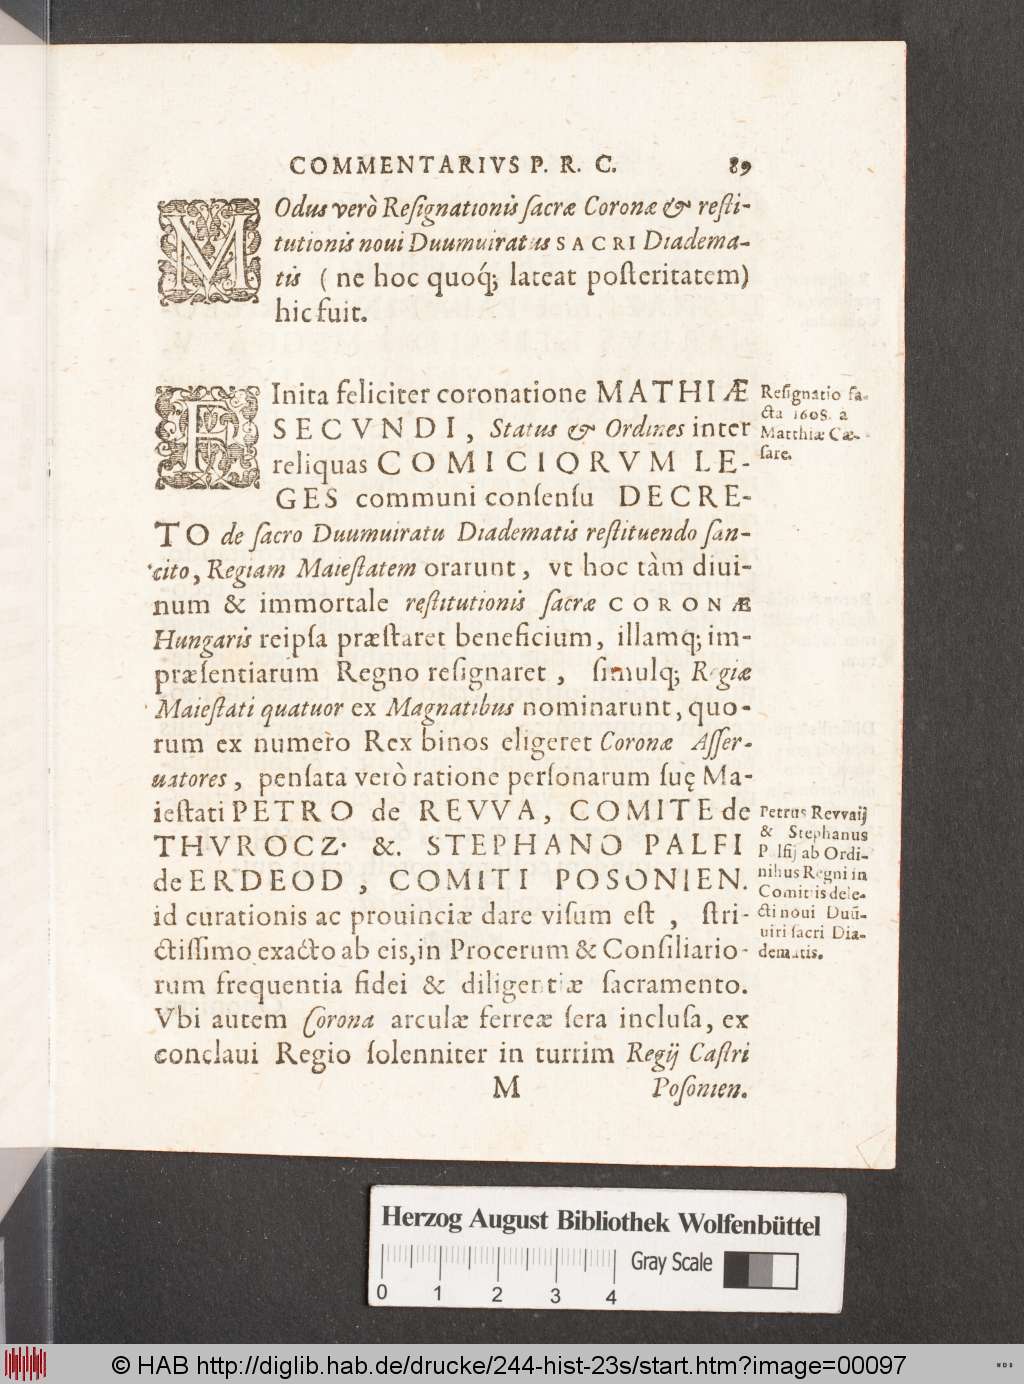 COMMENTARIVS P. R. C. 89
MOdus verò Resignationis sacræ Coronæ & resti-
tutionis noui Duumuiratus SACRI Diadema-
tis ( ne hoc quoq́; lateat posteritatem)
hic fuit.
FInita feliciter coronatione MATHIÆ
SECVNDI, Status & Ordines inter
reliquas COMICIORVM LE-
GES communi consensu DECRE-
TO de sacro Duumuiratu Diadematis restituendo san-
cito, Regiam Maiestatem orarunt, vt hoc tàm diui-
num & immortale restitutionis sacræ CORONÆ
Hungaris reipsa præstaret beneficium, illamq; im-
præsentiarum Regno resignaret, simulq; Regiæ
Maiestati quatuor ex Magnatibus nominarunt, quo-
rum ex numero Rex binos eligeret Coronæ Asser-
uatores, pensata verò ratione personarum suę Ma-
iestati PETRO de REVVA, COMITE de
THVROCZ. &. STEPHANO PALFI
de ERDEOD, COMITI POSONIEN.
id curationis ac prouinciæ dare visum est, stri-
ctissimo exacto ab eis, in Procerum & Consiliario-
rum frequentia fidei & diligentiæ sacramento.
Vbi autem Corona arculæ ferreæ sera inclusa, ex
conclaui Regio solenniter in turrim Regij Castri
M Posonien.
Resignatio fa-
cta 1608. a
Matthiæ Cæ-
sare.
Petrus Revvaij
& Stephanus
Palfij ab Ordi-
nibus Regni in
Comitiis dele-
cti noui Duũ-
uiri sacri Dia-
dematis.
Herzog August Bibliothek Wolfenbüttel
Gray Scale
0 1 2 3 4
© HAB http://diglib.hab.de/drucke/244-hist-23s/start.htm?image=00097